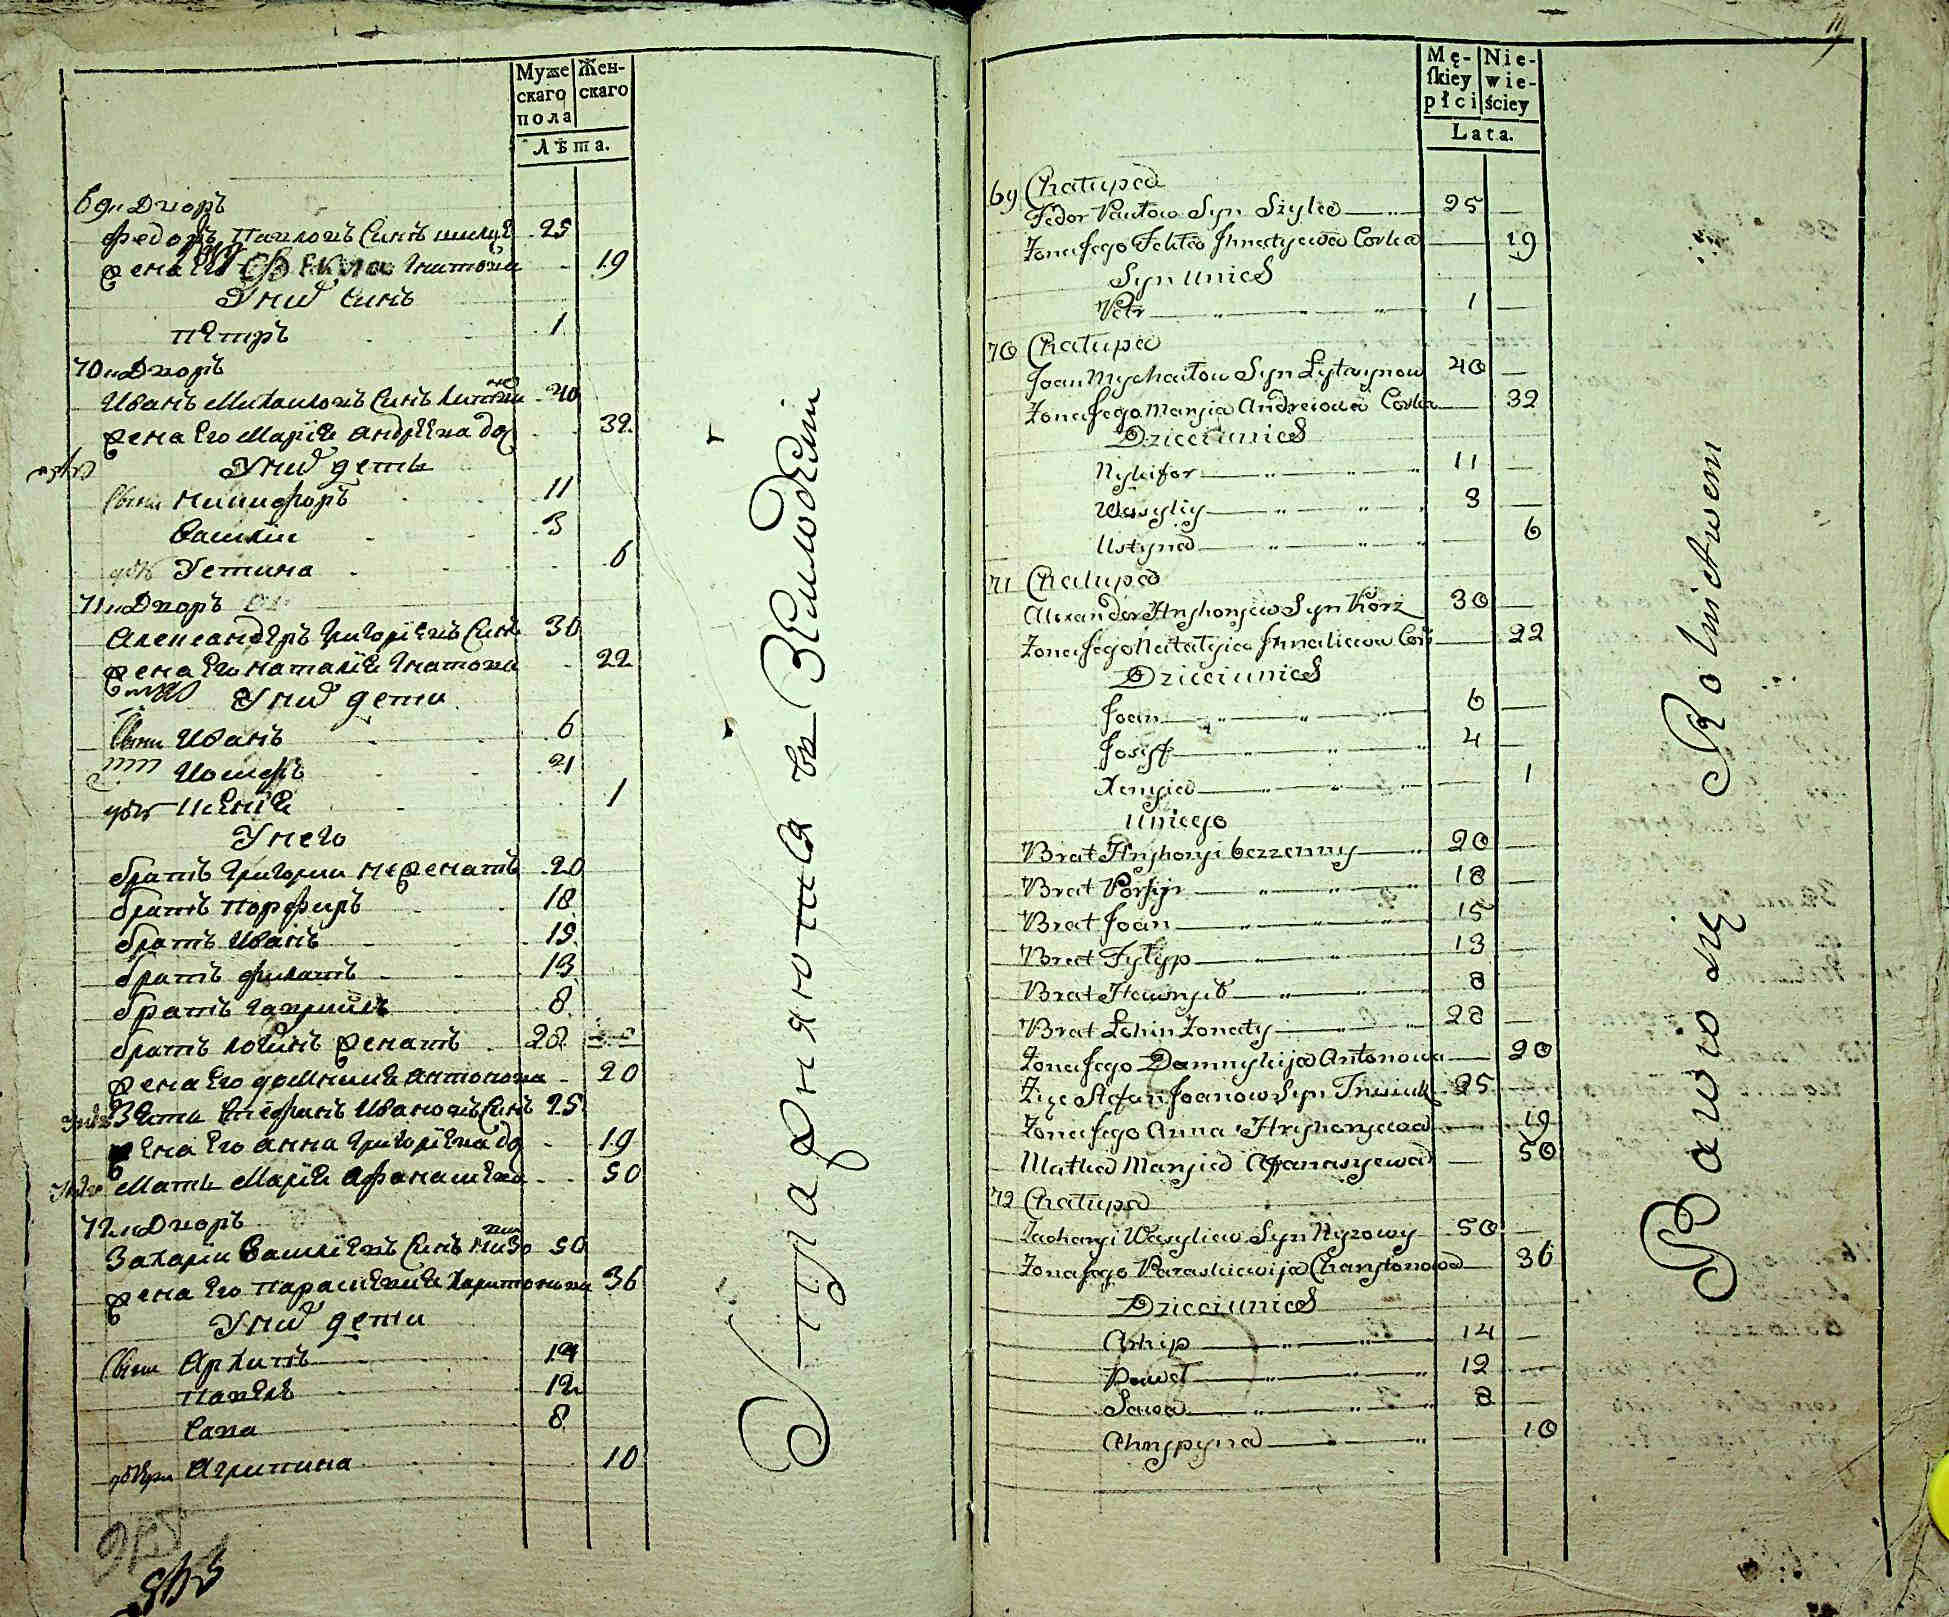 Муже
скаго
пола
Жен-
скаго
Лѣта.
69й Дворъ
Федоръ Павловъ Синъ шилце 25
жена Его Фекла Гнатова 19
У них Синъ
Петръ 1
70й Дворъ
Иванъ Михаиловъ Синъ 40
жена Его Марія Андреева до 32
У них дети
Сыни Никифоръ 11
Василіи 3
Устина 6
71й Дворъ
Александеръ Григоріевъ Синъ 30
жена Его Наталія Гнатова 22
У них дети
Сыни Иванъ 6
Иосифъ 4
Ксенія 1
У него
братъ Григории нежинатъ 20
братъ Порфиръ 18
братъ Иванъ 15
братъ Филатъ 13
братъ Гавриилъ 8
братъ Логинъ женатъ 28
жена Его Домникія Антонова 20
Зять Стефанъ Ивановъ Синъ 25
жена Его Анна Григоріева до 19
Мать Марія Афанасиева 50
72й Дворъ
Захарїи Василіевъ Синъ 50
жена Его Параскевия Харитонова 36
У них дети
Сыни Архипъ 14
Павелъ 12
Сава 8
Агрипина 10
Упражняются въ Земледелии
19
Mę-
ſkiey
płci
Nie-
wie-
ściey
Lata.
69 Chałupa
Fedor Pawłow Syn Szylce 25
Zona Jego Fekła Hnatyewa Corka 19
Syn u nich
Petr 1
70 Chałupa
Joan Mychaiłow Syn Łytwynow 40
Zona Jego Maryia Andreiowa Corka 32
Dzieci u nich
Nykifor 11
Wasyliy 3
Ustyna 6
71 Chałupa
Alexander Hryhoryew Syn Korz 30
Zona Jego Natałyia Hnatiewa Cor 22
Dzieci u nich
Joan 6
Josyf 4
Xenyia 1
u niego
Brat Hryhoryi bezzenny 20
Brat Porfyr 18
Brat Joan 15
Brat Fyłyp 13
Brat Hawryił 8
Brat Łohin Zonaty 28
Zona Jego Damnykija Antonowa 20
Zięc Stefan Joanow Syn 25
Zona Jego Anna Hryhoryewa 19
Matka Maryia Afanasyewa 50
72 Chałupa
Zacharyi Wasyliew Syn Nyzowy 50
Zona Jego Paraskiewija Charytonowa 36
Dzieci u nich
Arhip 14
Paweł 12
Sawa 8
Ahrypyna 10
Bawio się Rolnictwem